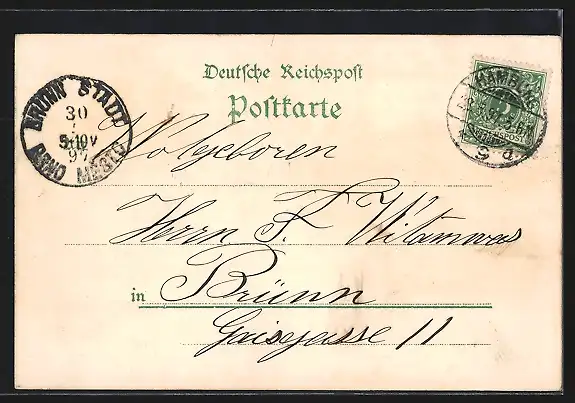 Deutsche Reichspost
Postkarte
BRÜNN STADT
30
5-10V
97
BRNO MĚSTO
HAMBURG
REICHSPOST
Wolgeboren
Herrn F. Witamwas
in Brünn
Gaisgasse 11